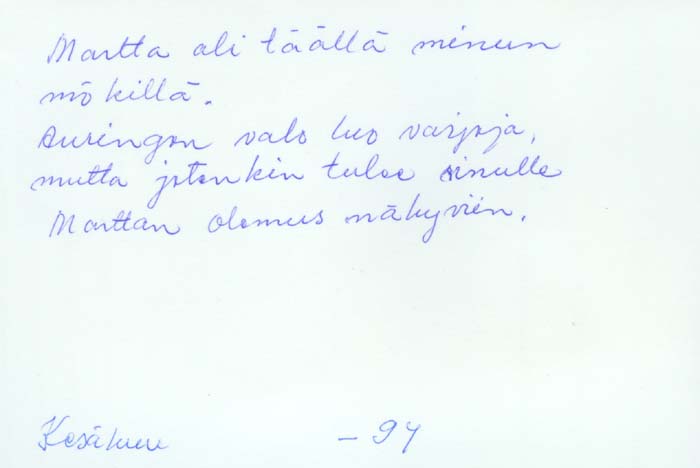 Martta oli täällä minun
mökillä.
Auringon valo luo varjoja,
mutta jotenkin tulee sinulle
Marttan olemus näkyviin.
Kesäkuu - 94